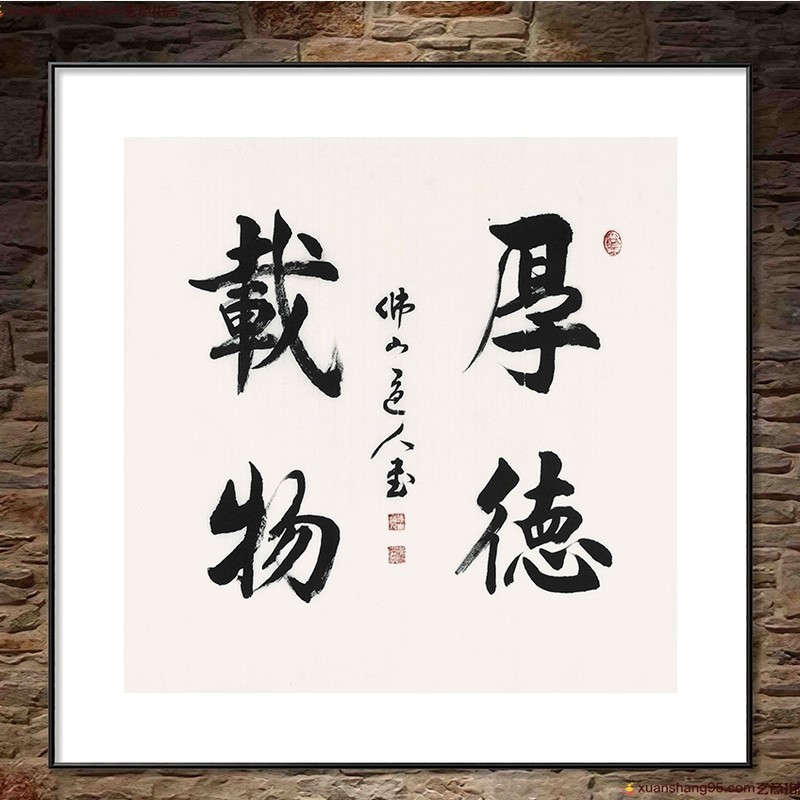 厚德
載物
佛山道人書
xuanshang95.com玄商拍